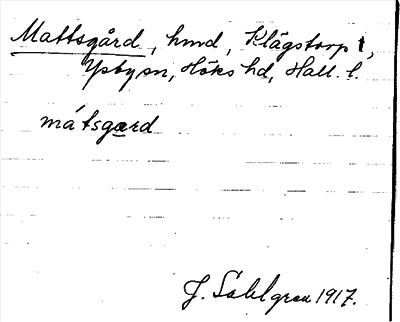 Mattsgård, hmd, Klägstorp 1,
Ysby sn, Höks hd, Hall. l.
mátsgærd
J. Sahlgren 1917.